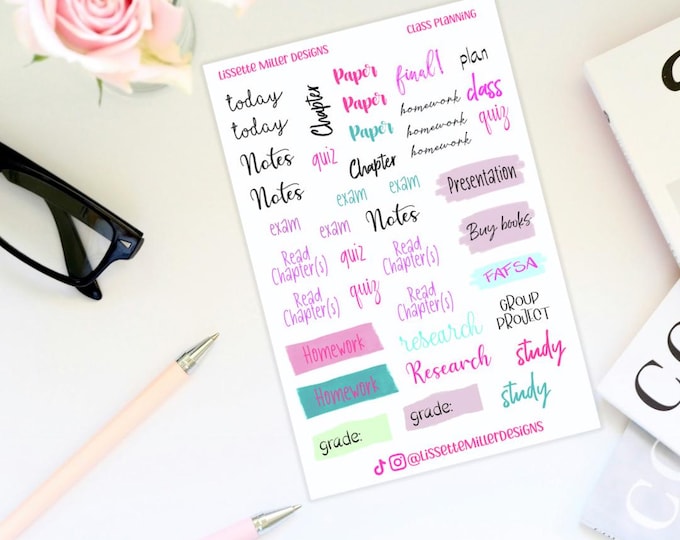 Lissette Miller Designs
Class Planning
today
today
Chapter
Paper
Paper
Paper
final!
plan
homework
homework
homework
class
quiz
Notes
quiz
Chapter
Notes
exam
exam
Presentation
exam
exam
Notes
Buy books
Read
Chapter(s)
quiz
Read
Chapter(s)
FAFSA
Read
Chapter(s)
quiz
Read
Chapter(s)
GROUP
PROJECT
Homework
research
study
Homework
Research
study
grade:
grade:
@LissetteMillerDesigns